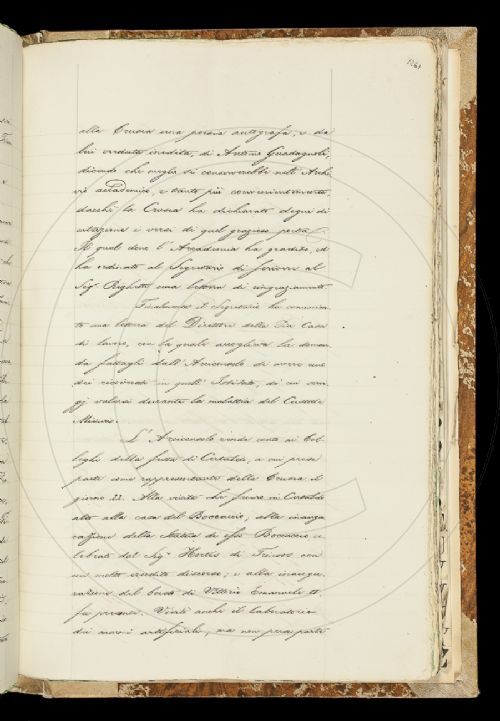 1261
alla Crusca una poesia autografa, e da
lui creduta inedita, di Antonio Guadagnoli,
dicendo che meglio si conserverebbe nell'Archi
vio accademico, e tanto più convenientemente
dacchè la Crusca ha dichiarato degni di
citazione i versi di quel grazioso poeta.
Il qual dono l'Accademia ha gradito, ed
ha ordinato al Segretario di scrivere al
Sig.r una lettera di ringraziamento.
Finalmente il Segretario ha comunica-
to una lettera del Direttore della Pia Casa
di lavoro, con la quale accoglieva la doman
da fattagli dall'Arciconsolo di avere uno
dei ricoverati in quell'Istituto, di cui
valersi durante la malattia del Custode
L'Arciconsolo rende conto ai Col-
leghi della festa di Certaldo, a cui prese
parte come rappresentante della Crusca il
giorno 22. Alla visita che fecero in Certaldo
alto alla casa del Boccaccio, alla inaugu
razione della Statua di esso Boccaccio ce
lebrata dal Sig.r Hortis di Trieste con
un molto erudito discorso, e alla inaugu-
razione del busto di Vittorio Emanuele II.
fu presente. Visitò anche il laboratorio
dei marmi artificiali, ma non prese parte